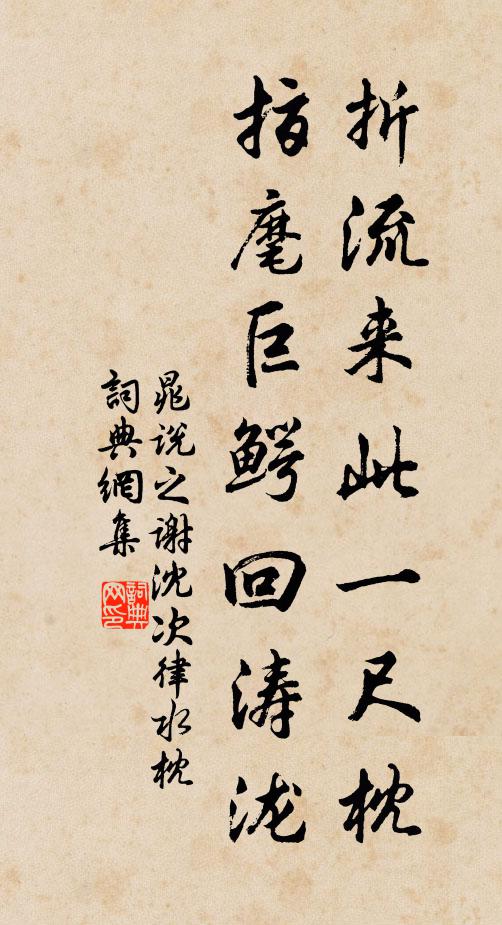 折流来此一尺枕
指麾巨鳄回涛泷
晁说之谢沈次律水枕
词典網集
词典网印